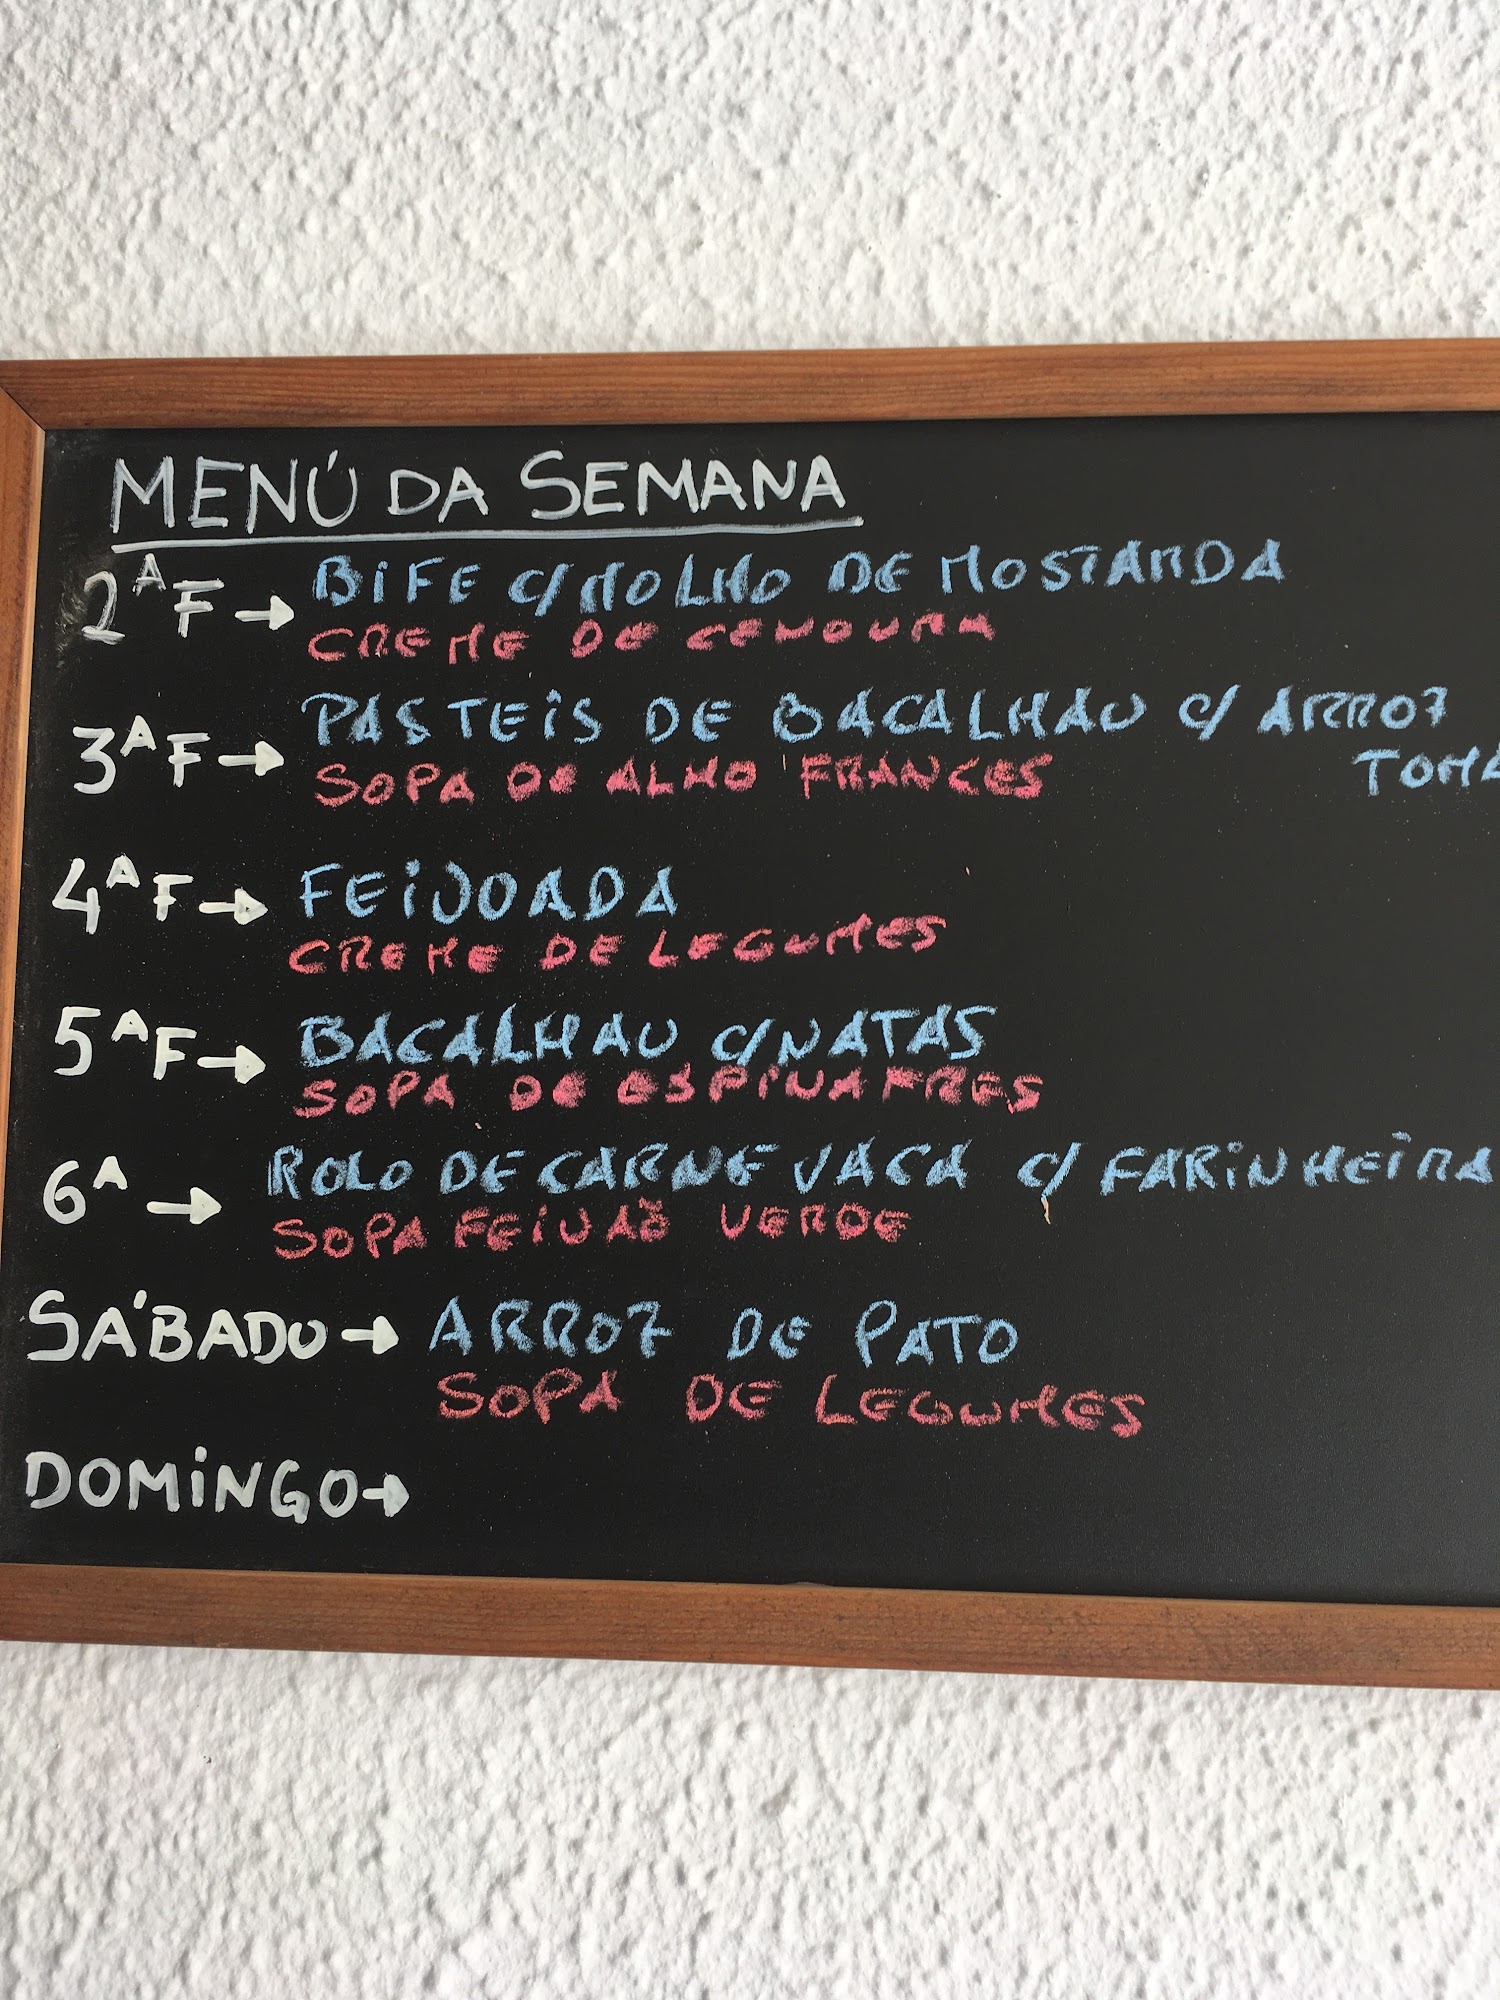 MENÚ DA SEMANA
2ªF → BIFE C/MOLHO DE MOSTARDA
CREME DE CENOURA
3ªF → PASTEIS DE BACALHAU C/ ARROZ
TOMA
SOPA DE ALHO FRANCES
4ªF → FEIJOADA
CREME DE LEGUMES
5ªF → BACALHAU C/NATAS
SOPA DE ESPINAFRES
6ª → ROLO DE CARNE VACA C/ FARINHEIRA
SOPA FEIJÃO VERDE
SÁBADO → ARROZ DE PATO
SOPA DE LEGUMES
DOMINGO →